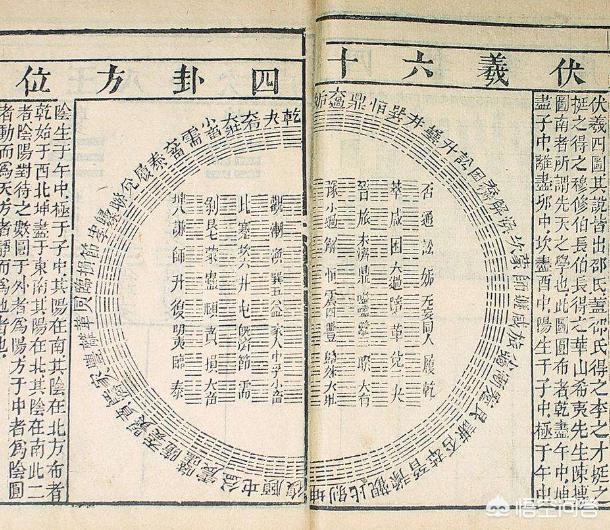 伏羲六十四卦方位
伏羲四圖其說皆出邵氏蓋邵氏得之李之才挺之
挺之得之穆修伯長伯長得之華山希夷先生陳摶
圖南者所謂先天之學也此圖圓布者乾盡午中坤
盡子中離盡卯中坎盡酉中陽生于子中極于午中
姤大過鼎恒巽井蠱升訟困未濟解渙坎蒙師遯咸旅小過漸蹇艮謙否萃晉豫觀比剝坤
乾夬大有大壯小畜需大畜泰履兌睽歸妹中孚節損臨同人革離豐家人既濟賁明夷无妄隨噬嗑震益屯頤復
否遯訟姤无妄同人履乾
萃咸困大過隨革兌夬
晉旅未濟鼎噬嗑離睽大有
豫小過解恒震豐歸妹大壯
觀漸渙巽益家人中孚小畜
比蹇坎井屯既濟節需
剝艮蒙蠱頤賁損大畜
坤謙師升復明夷臨泰
陰生于午中極于子中其陽在南其陰在北方布者
乾始于西北坤盡于東南其陽在北其陰在南此二
者陰陽對待之數圓于外者爲陽方于中者爲陰圓
者動而爲天方者靜而爲地者也
悟空问答